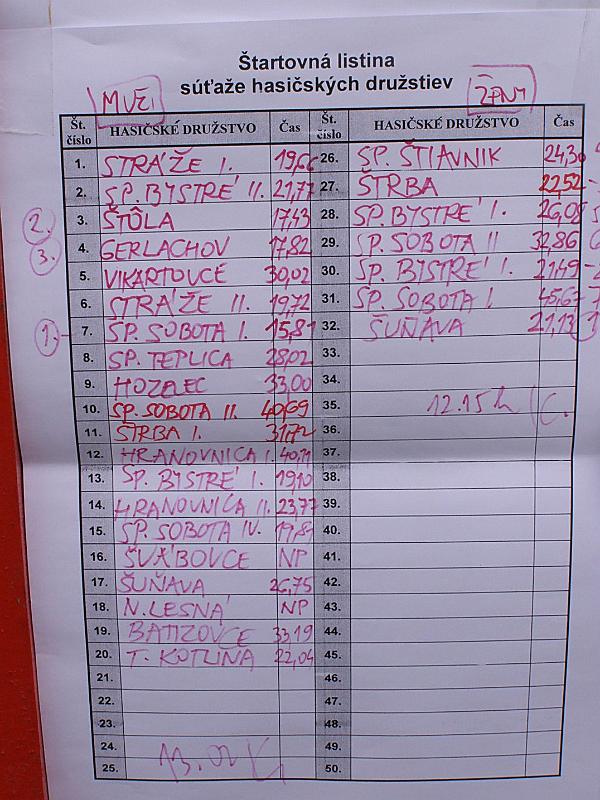 Štartovná listina
súťaže hasičských družstiev
MUŽI
ŽENY
Št. číslo HASIČSKÉ DRUŽSTVO Čas
1. STRÁŽE I. 19,66
2. SP. BYSTRÉ II. 21,77
2. 3. ŠTÔLA 17,43
3. 4. GERLACHOV 17,82
5. VIKARTOVCE 30,02
6. STRÁŽE II. 19,72
1. 7. SP. SOBOTA I. 15,81
8. SP. TEPLICA 28,02
9. HOZELEC 33,00
10. SP. SOBOTA II. 40,69
11. ŠTRBA I. 31,72
12. HRANOVNICA I. 40,11
13. SP. BYSTRÉ I. 19,10
14. HRANOVNICA II. 23,77
15. SP. SOBOTA IV. 19,89
16. ŠVÁBOVCE NP
17. ŠUŇAVA 26,75
18. N. LESNÁ NP
19. BATIZOVCE 33,19
20. T. KOTLINA 22,04
21.
22.
23.
24.
25.
13.02
Št. číslo HASIČSKÉ DRUŽSTVO Čas
26. SP. ŠTIAVNIK 24,30
27. ŠTRBA 22,52
28. SP. BYSTRÉ I. 26,08
29. SP. SOBOTA II 32,86
30. SP. BYSTRÉ I. 21,49
31. SP. SOBOTA I. 45,67
32. ŠUŇAVA 21,13
33.
34.
35. 12.15 h
36.
37.
38.
39.
40.
41.
42.
43.
44.
45.
46.
47.
48.
49.
50.